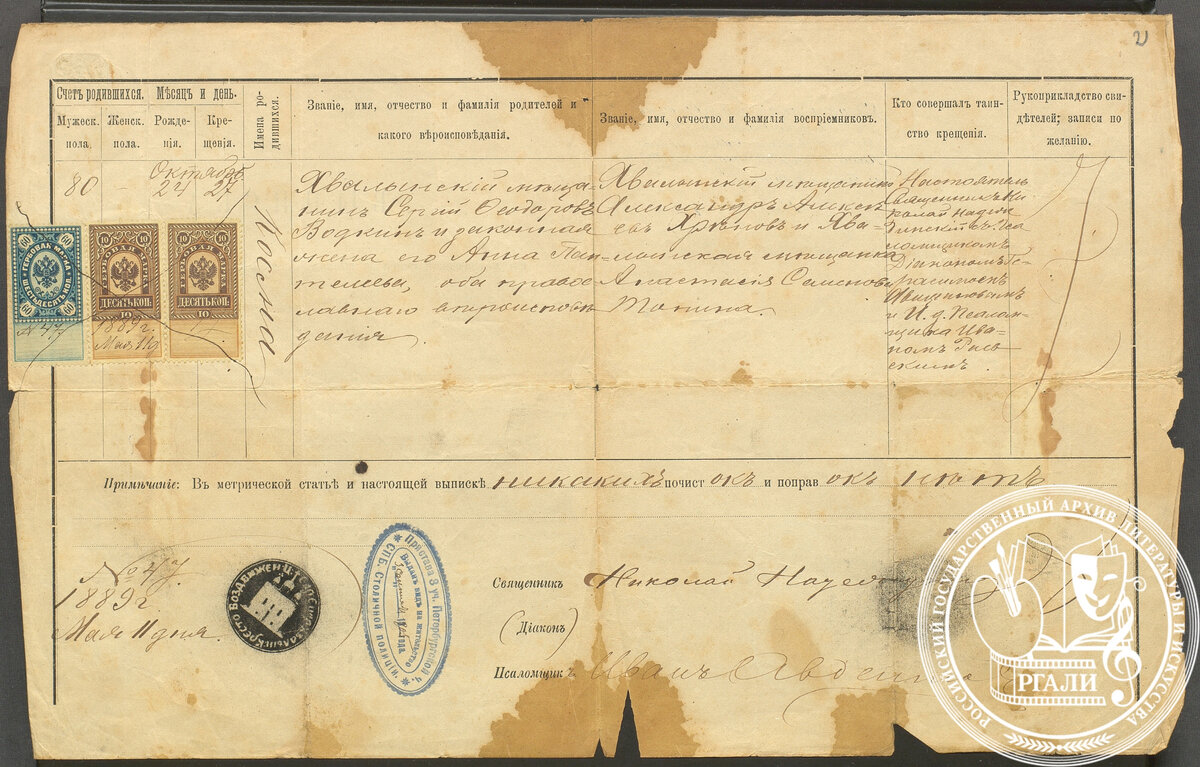 Счетъ родившихся.
Мужеск. пола.
Женск. пола.
Мѣсяцъ и день.
Рожде-
нія.
Кре-
щенія.
Имена ро-
дившихся.
Званіе, имя, отчество и фамилія родителей и
какого вѣроисповѣданія.
Званіе, имя, отчество и фамилія воспріемниковъ.
Кто совершалъ таин-
ство крещенія.
Рукоприкладство сви-
дѣтелей; записи по
желанію.
80
Октябрь
24 27
Косма
Хвалынскій мѣща-
нинъ Сергій Ѳеодоровъ
Водкинъ и законная
жена его Анна Пан-
телеева, оба правос-
лавнаго вѣроисповѣ-
данія.
Хвалынскій мѣщанинъ
Александръ Алексѣ-
евъ Хрѣновъ и Хва-
лынская мѣщанка
Анастасія Семенова
Настоятель
священникъ Ни-
колай
Діаконом
и И. д. Псалом-
щика Ива-
номъ
ГЕРБОВАЯ МАРКА
ШЕСТЬДЕСЯТЪ КОП.
60 60
№ 47
ГЕРБОВАЯ МАРКА
ДЕСЯТЬ КОП.
10
1889 г.
Мая 11 д
ГЕРБОВАЯ МАРКА
ДЕСЯТЬ КОП.
10
Примѣчаніе: Въ метрической статьѣ и настоящей выпискѣ никакихъ почист окъ и поправ окъ нѣтъ
№ 47.
1889 г.
Мая 11 дня.
Пристава 3 уч. Петербургской ч.
СПБ. столичной полиціи
Выданъ видъ на жительство
Священникъ Николай
(Діаконъ)
Псаломщикъ Иванъ
РОССИЙСКИЙ ГОСУДАРСТВЕННЫЙ АРХИВ ЛИТЕРАТУРЫ И ИСКУССТВА
РГАЛИ